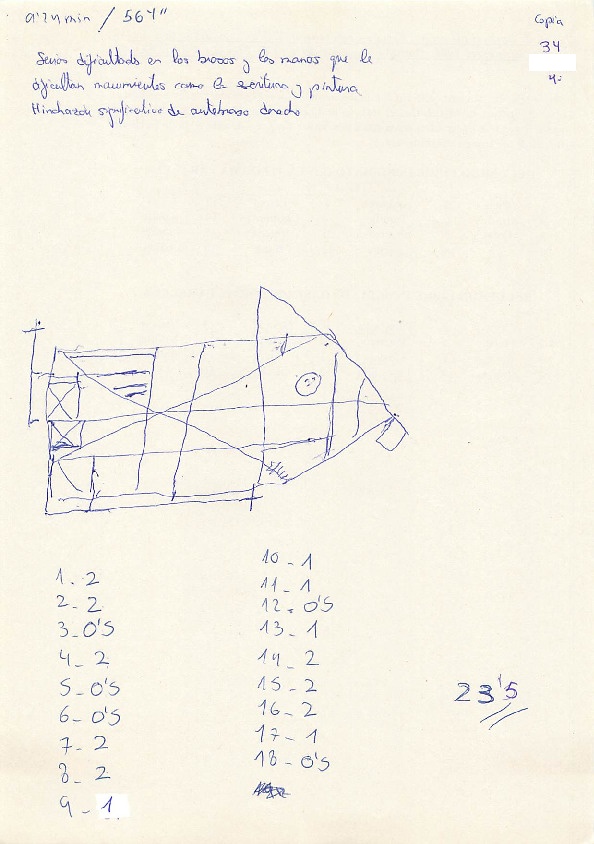 9'24 min / 564"
Copia
34
4:
Serias dificultades en los brazos y las manos que le
dificultan movimientos como la escritura y pintura
Hinchazón significativo de antebrazo derecho
1. 2
2 - 2
3 - 0'5
4 - 2
5 - 0'5
6 - 0'5
7 - 2
8 - 2
9 - 1
10 - 1
11 - 1
12 - 0'5
13 - 1
14 - 2
15 - 2
16 - 2
17 - 1
18 - 0'5
23'5